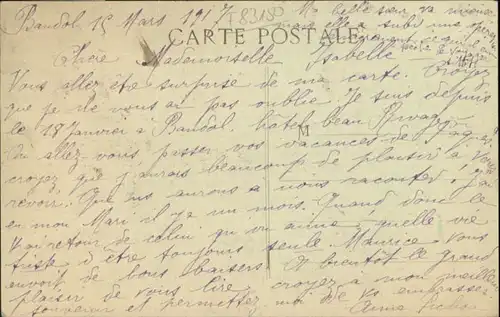 Bandol 15 Mars 1917 F83180
Ma belle sœur va mieux
mais elle a subi une
CARTE POSTALE
Chère Mademoiselle Isabelle
Vous allez être surprise de ma carte. Croyez
que je ne vous ai pas oublié. Je suis depuis
le 18 Janvier à Bandol. hôtel beau Rivage
Où allez-vous passer vos vacances de Pâques,
croyez que j'aurais beaucoup de plaisir à vous
revoir. Que nous aurons à nous raconter. J'ai
eu mon Mari il y a un mois. Quand donc le
retour de celui qu'on aime, quelle vie
triste d'être toujours seule. Maurice vous
envoit de bons baisers et bientôt le grand
plaisir de vous lire croyez à mon meilleur
souvenir et permettez moi de vous embrasser.